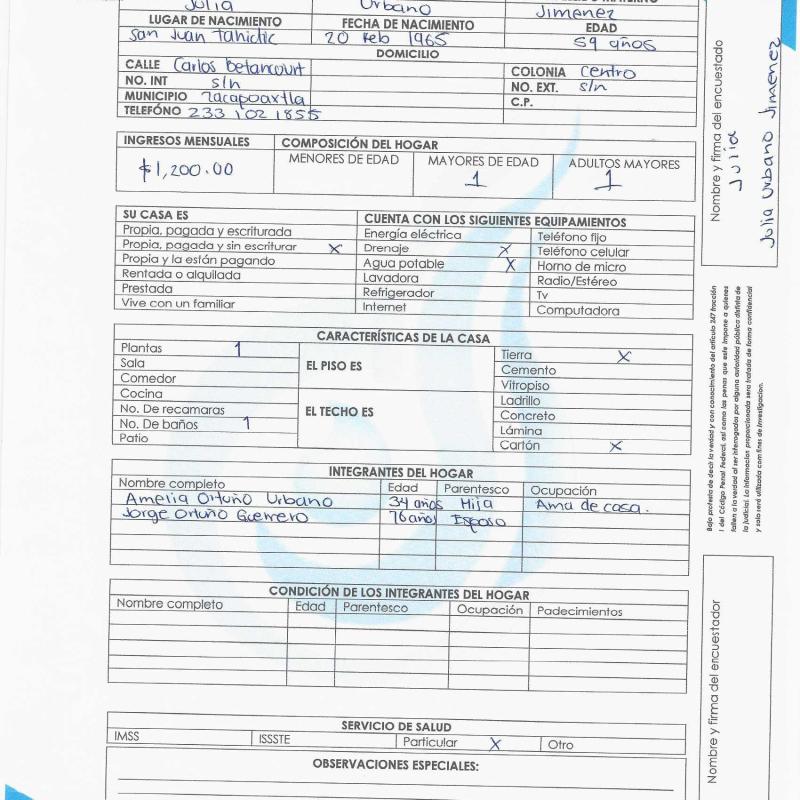 Julia Urbano Jimenez
LUGAR DE NACIMIENTO FECHA DE NACIMIENTO EDAD
San Juan Tahidic 20 Feb 1965 59 años
DOMICILIO
CALLE Carlos betancourt COLONIA Centro
NO. INT s/n NO. EXT. s/n
MUNICIPIO Zacapoaxtla C.P.
TELEFÓNO 233 102 1855
INGRESOS MENSUALES COMPOSICIÓN DEL HOGAR
MENORES DE EDAD MAYORES DE EDAD ADULTOS MAYORES
$1,200.00 1 1
SU CASA ES CUENTA CON LOS SIGUIENTES EQUIPAMIENTOS
Propia, pagada y escriturada Energía eléctrica Teléfono fijo
Propia, pagada y sin escriturar X Drenaje X Teléfono celular
Propia y la están pagando Agua potable X Horno de micro
Rentada o alquilada Lavadora Radio/Estéreo
Prestada Refrigerador Tv
Vive con un familiar Internet Computadora
CARACTERÍSTICAS DE LA CASA
Plantas 1 EL PISO ES Tierra X
Sala Cemento
Comedor Vitropiso
Cocina EL TECHO ES Ladrillo
No. De recamaras Concreto
No. De baños 1 Lámina
Patio Cartón X
INTEGRANTES DEL HOGAR
Nombre completo Edad Parentesco Ocupación
Amelia Ortuño Urbano 34 años Hija Ama de casa.
Jorge Ortuño Guerrero 76 años Esposo
CONDICIÓN DE LOS INTEGRANTES DEL HOGAR
Nombre completo Edad Parentesco Ocupación Padecimientos
SERVICIO DE SALUD
IMSS ISSSTE Particular X Otro
OBSERVACIONES ESPECIALES:
Nombre y firma del encuestado
Julia
Julia Urbano Jimenez
Bajo protesta de decir la verdad y con conocimiento del artículo 247 fracción
I del Código Penal Federal, así como las penas que este impone a quienes
falten a la verdad al ser interrogados por alguna autoridad pública distinta de
la judicial. La información proporcionada sera tratada de forma confidencial
y solo será utilizada con fines de investigacion.
Nombre y firma del encuestador